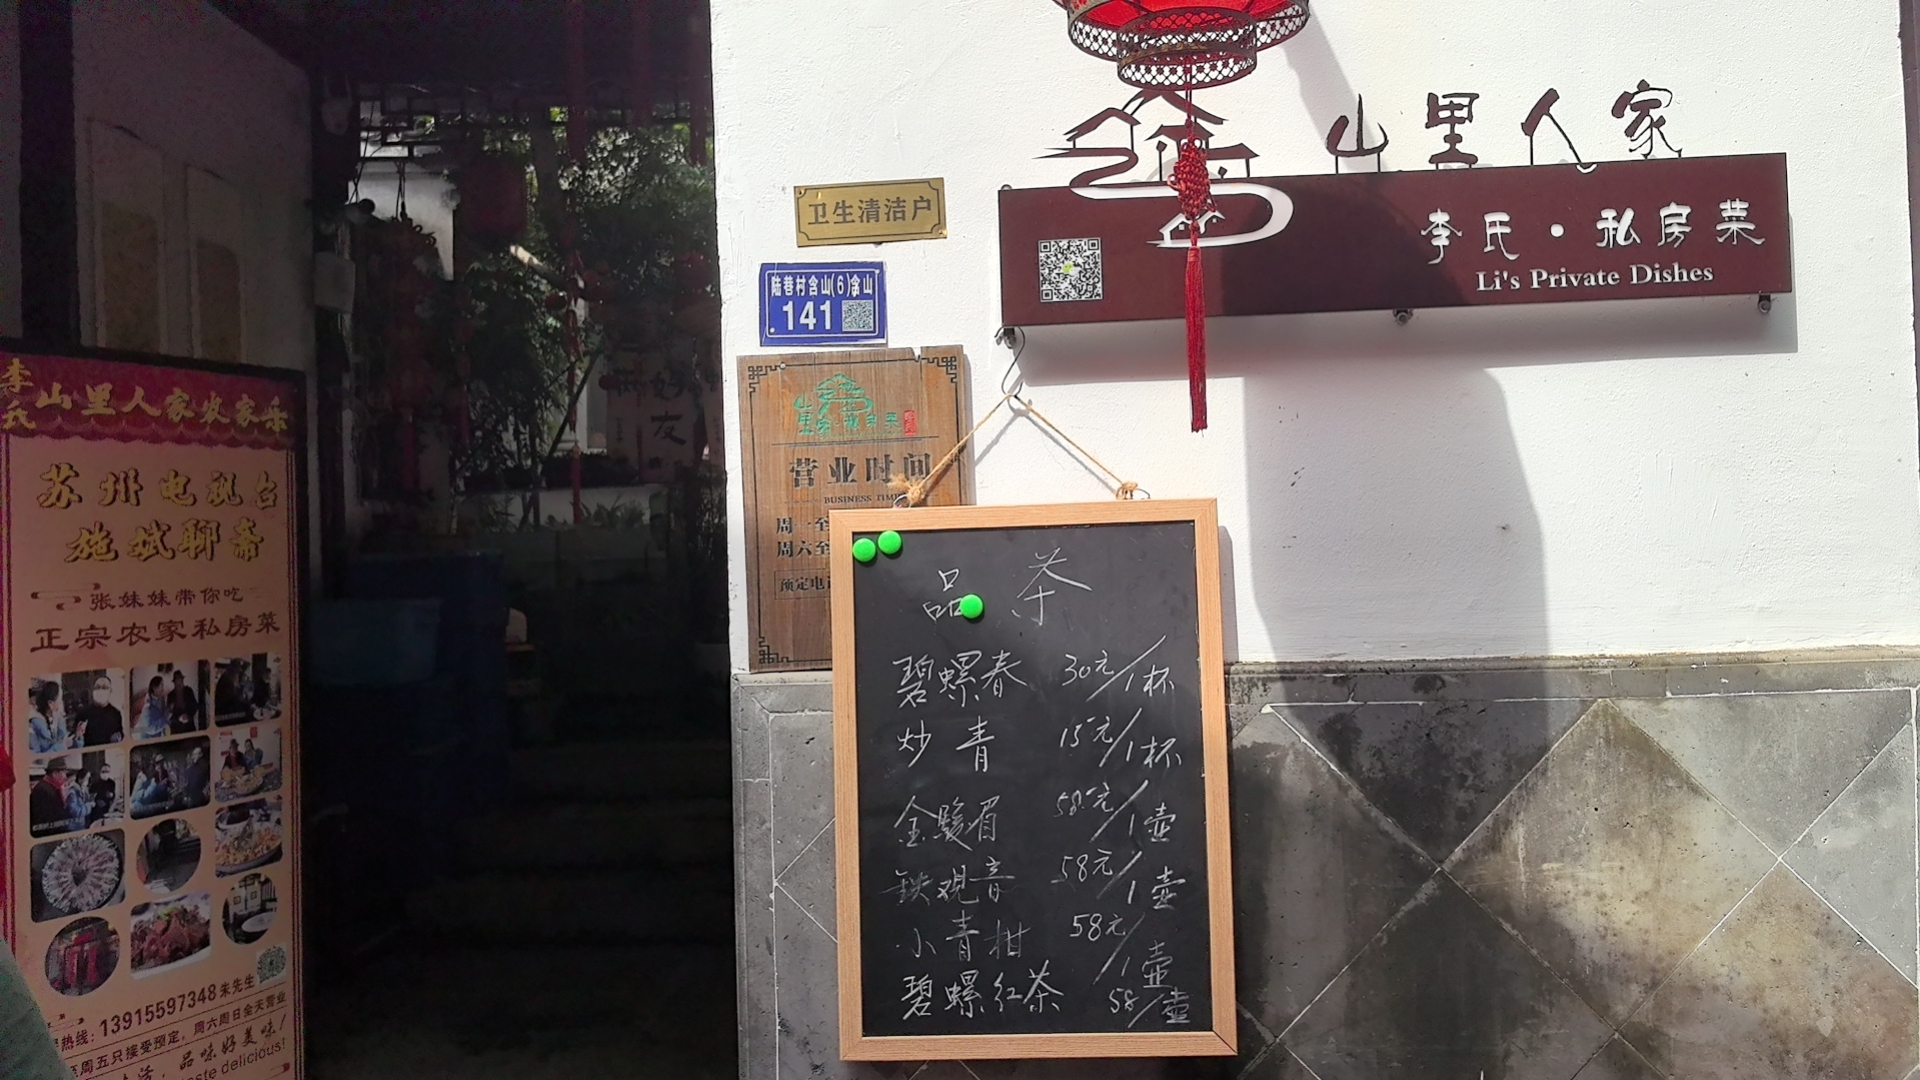 山里人家
李氏·私房菜
Li's Private Dishes
卫生清洁户
陆巷村含山(6)含山
141
营业时间
BUSINESS TIME
周一至
周六至
预定电
品茶
碧螺春 30元/1杯
炒青 15元/1杯
金骏眉 58元/1壶
铁观音 58元/1壶
小青柑 58元/1壶
碧螺红茶 58/壶
好友
李氏山里人家农家乐
苏州电视台
施斌聊斋
张妹妹带你吃
正宗农家私房菜
热线：13915597348朱先生
至周五只接受预定，周六周日全天营业
品味好美味！
delicious!